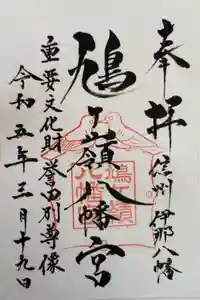 奉拝
信州 伊那八幡
鳩ヶ嶺八幡宮
重要文化財誉田別尊像
令和五年三月十九日